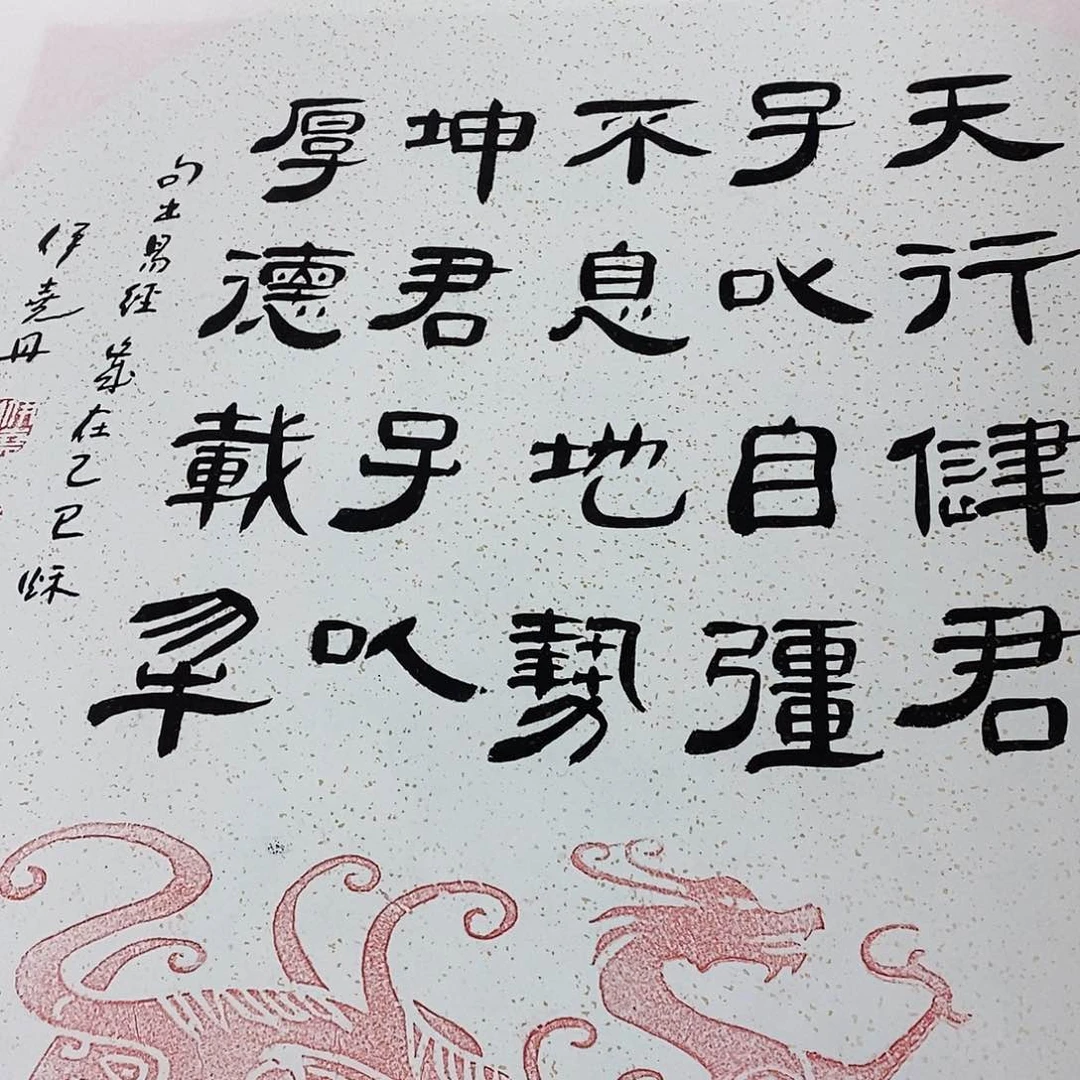 天行健君
子以自彊
不息地勢
坤君子以
厚德載物
句出易經歲在乙巳秋
伊堯丹